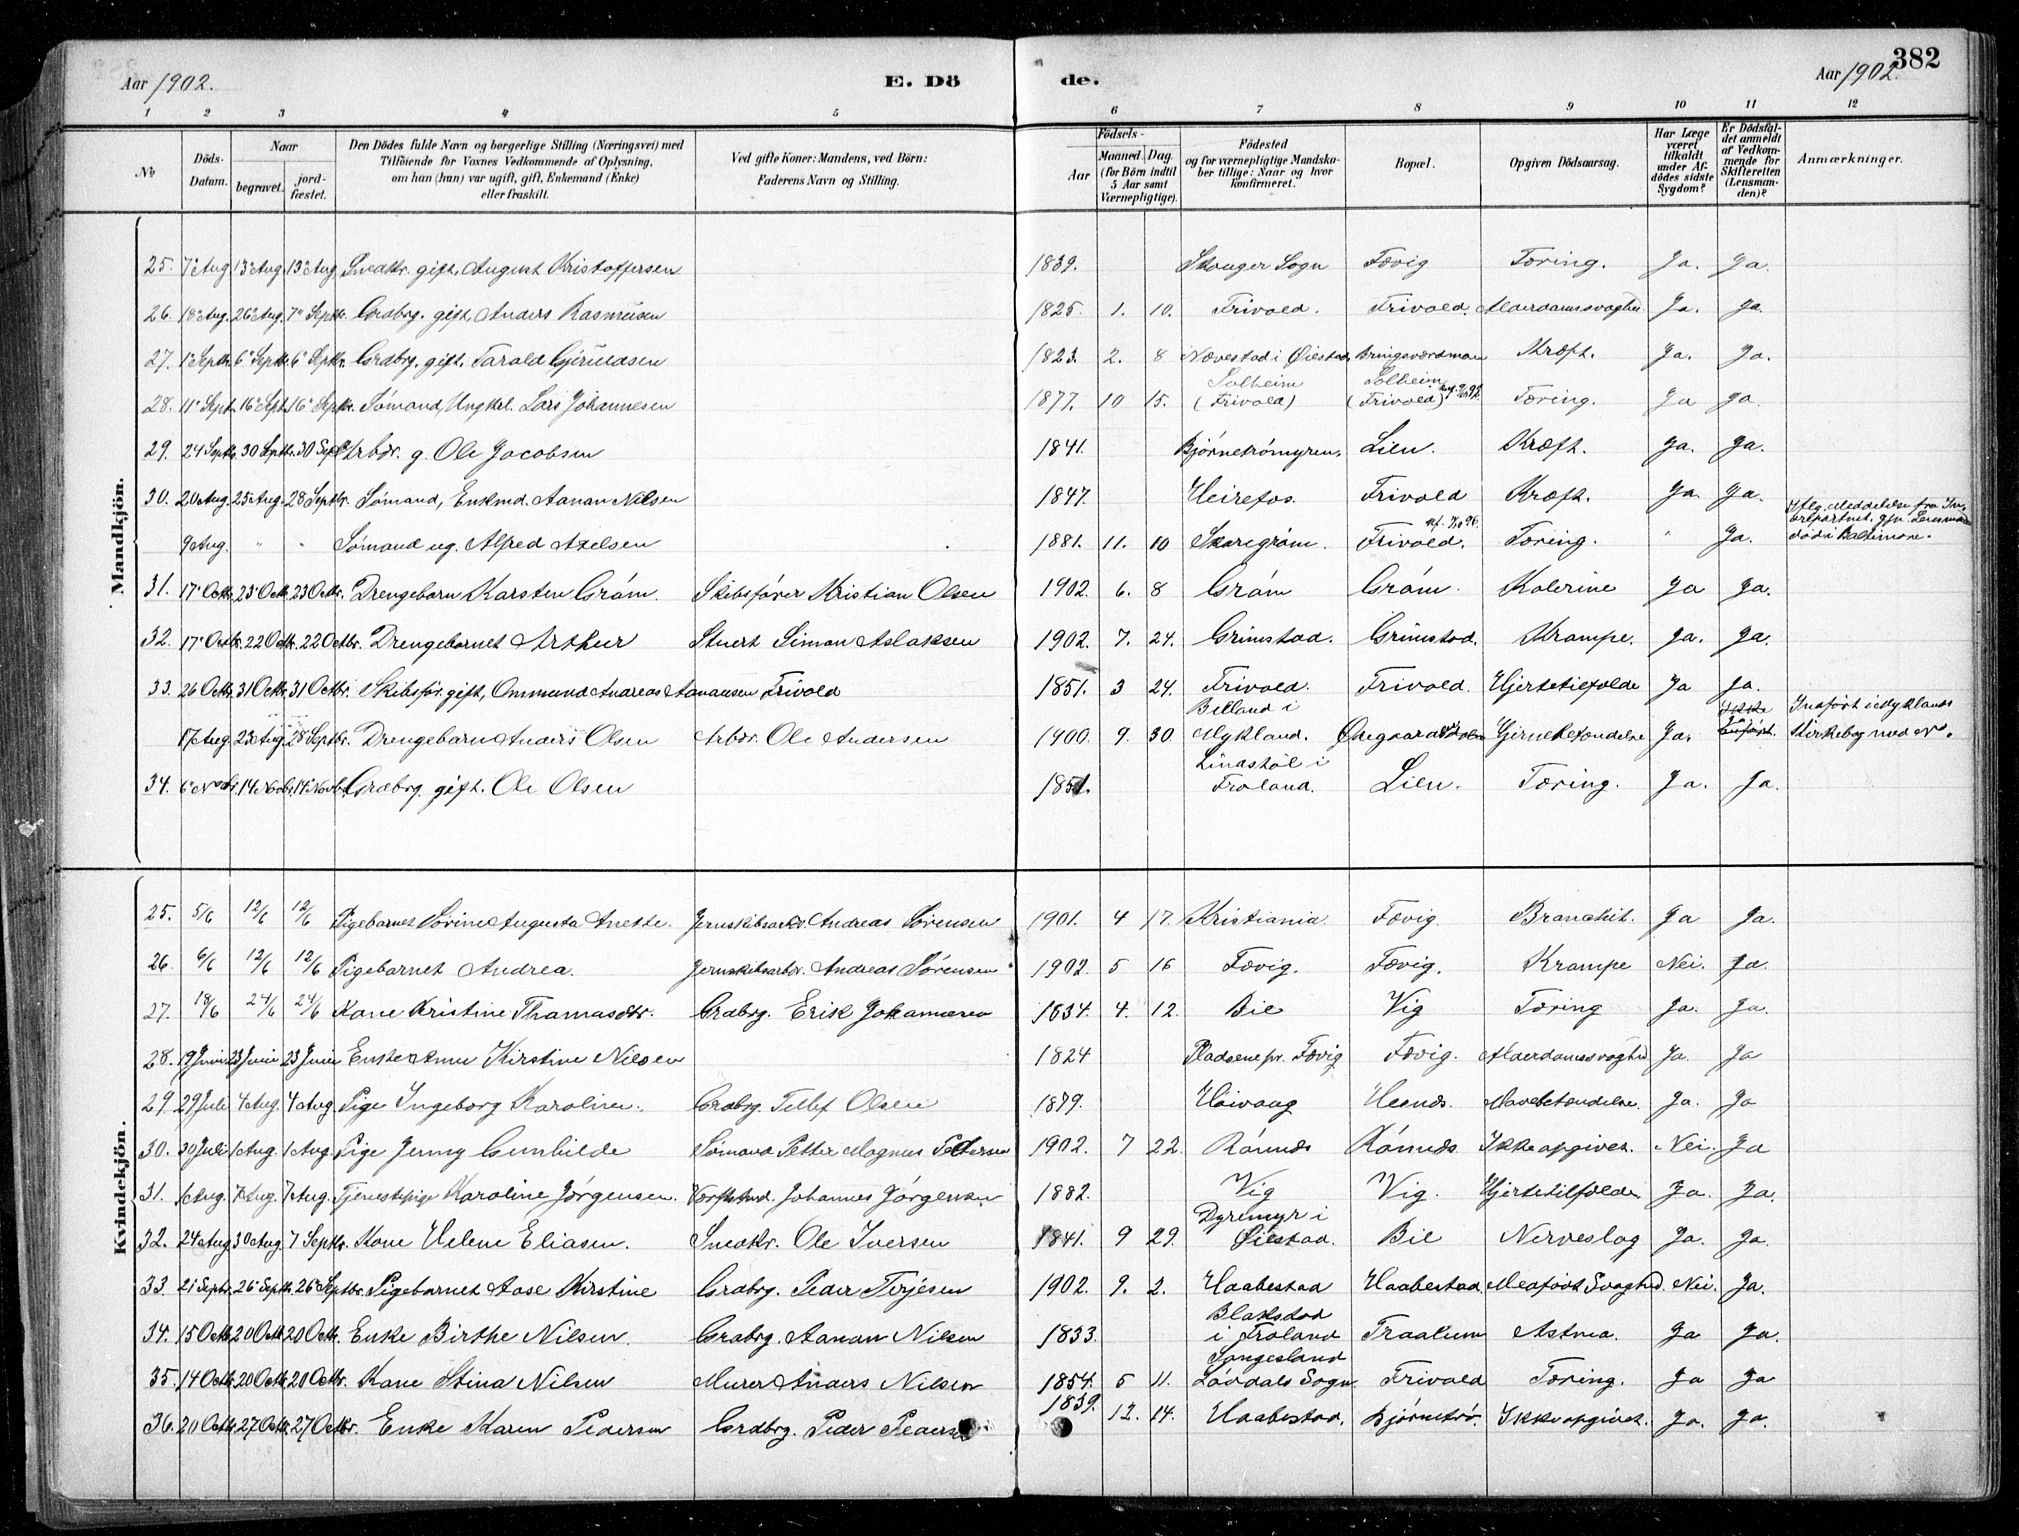 382
Aar 1902. E. Dö de. Aar 1902.
1 2 3 4 5 6 7 8 9 10 11 12
No
Döds-Datum.
Naar
begravet.
jordfæstet.
Den Dödes fulde Navn og borgerlige Stilling (Næringsvei) med
Tilföiende for Voxnes Vedkommende af Oplysning,
om han (hun) var ugift, gift, Enkemand (Enke)
eller fraskilt.
Ved gifte Koner: Mandens, ved Börn:
Faderens Navn og Stilling.
Födsels-
Aar
Maaned. Dag.
(for Börn indtil
5 Aar samt
Værnepligtige).
Födested
og for værnepligtige Mandska-
ber tillige: Naar og hvor
konfirmeret.
Bopæl.
Opgiven Dödsaarsag.
Har Læge
været
tilkaldt
under Af-
dödes sidste
Sygdom?
Er Dödsfal-
det anmeldt
af Vedkom-
mende for
Skifteretten
(Lensman-
den)?
Anmærkninger.
Mandkjön.
25. 7 Aug 13 Aug 13 Aug Snedkr. gift, August Kristoffersen 1839. Skouger Sogn Fævig Tæring. Ja. Ja.
26. 18 Aug. 26 Aug. 7 Septbr. Grdbrg. gift, Anders Rasmusen 1825. 1. 10. Frivold. Frivold. Alderdomssvaghed Ja. Ja.
27. 1 Septbr. 6 Septbr. 6 Septbr. Grdbrg. gift, Tarald Gjeruldsen 1823. 2. 8 Nævestad i Øiestad Bringsværdmoen Kræft. Ja. Ja.
28. 11 Sept. 16 Sept. 16 Septbr. Sømand, Ungkrl. Lars Johannesen 1877. 10 15. Solheim (Frivold) Solheim (Frivold) Tæring. Ja Ja.
29. 24 Septbr. 30 Septbr. 30 Sept Arbdr. g. Ole Jacobsen 1841. Bjørnetrømyren. Lien. Kræft. Ja. Ja.
30. 20 Aug. 25 Aug. 28 Septbr. Sømand, Enkmd. Aanan Nilsen 1847. Heirefos. Frivold Kræft. Ja. Ja.
9 Aug. " " Sømand ug. Alfred Axelsen 1881. 11. 10 Skaregrøm. Frivold. Tæring. " Ja. Iflg. Meddelelse fra gjn. Lensmand død i Baltimore.
31. 17 Octbr. 23 Octb. 23 Octbr. Drengebarn Karsten Grøm. Skibsfører Kristian Olsen 1902. 6. 8 Grøm Grøm. Kolerine Ja Ja.
32. 17 Octbr. 22 Octbr. 22 Octbr. Drengebarnet Arthur Stuert Simon Aslaksen 1902. 7. 24. Grimstad. Grimstad. Krampe. Ja. Ja.
33. 26 Octbr. 31 Octbr. 31 Octbr. Skibsfør. gift, Ommund Andreas Aanansen Frivold 1851. 3 24. Frivold. Frivold. Hjertetilfælde Ja Ja.
17 Aug. 23 Aug. 28 Septbr. Drengebarn Anders Olsen Arbdr. Ole Andersen 1900. 9. 30 Belland i Mykland. Hjernebetændelse Ja. Ja Indført i Myklands Kirkebog med No.
34. 6 Novbr. 14 Novbr. 14 Novbr. Grdbrg. gift. Ole Olsen 1851. Lindstøl i Froland. Lien. Tæring. Ja. Ja.
Kvindekjön.
25. 5/6 12/6 12/6 Pigebarnet Sørine Augusta Anette. Jernskibsarb. Andreas Sørensen 1901. 4 17. Kristiania Fævig. Bronckit. Ja Ja.
26. 6/6 12/6 12/6 Pigebarnet Andrea. Jernskibsarbdr. Andreas Sørensen 1902. 5 16 Fævig. Fævig. Krampe Nei. Ja.
27. 18/6 24/6 24/6 Kone Kristine Thomasdtr. Grdbrg. Erik Johannesen 1834. 4. 12. Bie Vig Tæring Ja. Ja.
28. 19 Juni 23 Juni 23 Juni Enke Anne Kirstine Nilsen 1824 Pladsene pr. Fævig Fævig. Alderdomssvaghed. Ja. Ja
29. 29 Juli 4 Aug. 4 Aug. Pige Ingeborg Karoline. Grdbrg. Tellef Olsen 1879. Høivaag Hesnæs. Mavebetændelse. Ja. Ja
30. 30 Juli 1 Aug. 1 Aug. Pige Jenny Gunhilde Sømand Petter Magnus Pettersen 1902. 7 22. Rønnes Rønnes. Ikke opgivet. Nei. Ja
31. 1 Aug. 7 Aug. 7 Aug. Tjenestepige Karoline Jørgensen. Værftstmd. Johannes Jørgensen 1882. Vig Vig. Hjertetilfælde Ja. Ja.
32. 24 Aug 30 Aug 7 Septbr. Kone Helene Eliasen. Snedkr. Ole Iversen 1841. 9 29. Dyremyr i Øiestad. Bie Nerveslag Ja. Ja.
33. 21 Septbr. 26 Septbr. 26 Septbr. Pigebarnet Aase Kirstine Grdbrg. Peder Terjesen 1902. 9. 2. Haabestad Haabestad. Medfødt Svaghed. Nei. Ja.
34. 15 Octbr. 20 Octb. 20 Octbr. Enke Birthe Nilsen. Grdbrg. Aanan Nilsen 1833. Blakstad i Froland Traalum Astma. Ja Ja.
35. 14 Octbr. 20 Octbr. 20 Octbr. Kone Stina Nilsen Murer Anders Nilsen 1854. 5 11. Songesland Løvdals Sogn. Frivold Tæring. Ja Ja
36. 20 Octbr. 27 Octbr. 27 Octbr. Enke Karen Pedersen Grdbrg. Peder Pedersen 1839. 12. 14. Haabestad. Bjørnetrø. Ikke opgivet. Ja. Ja.